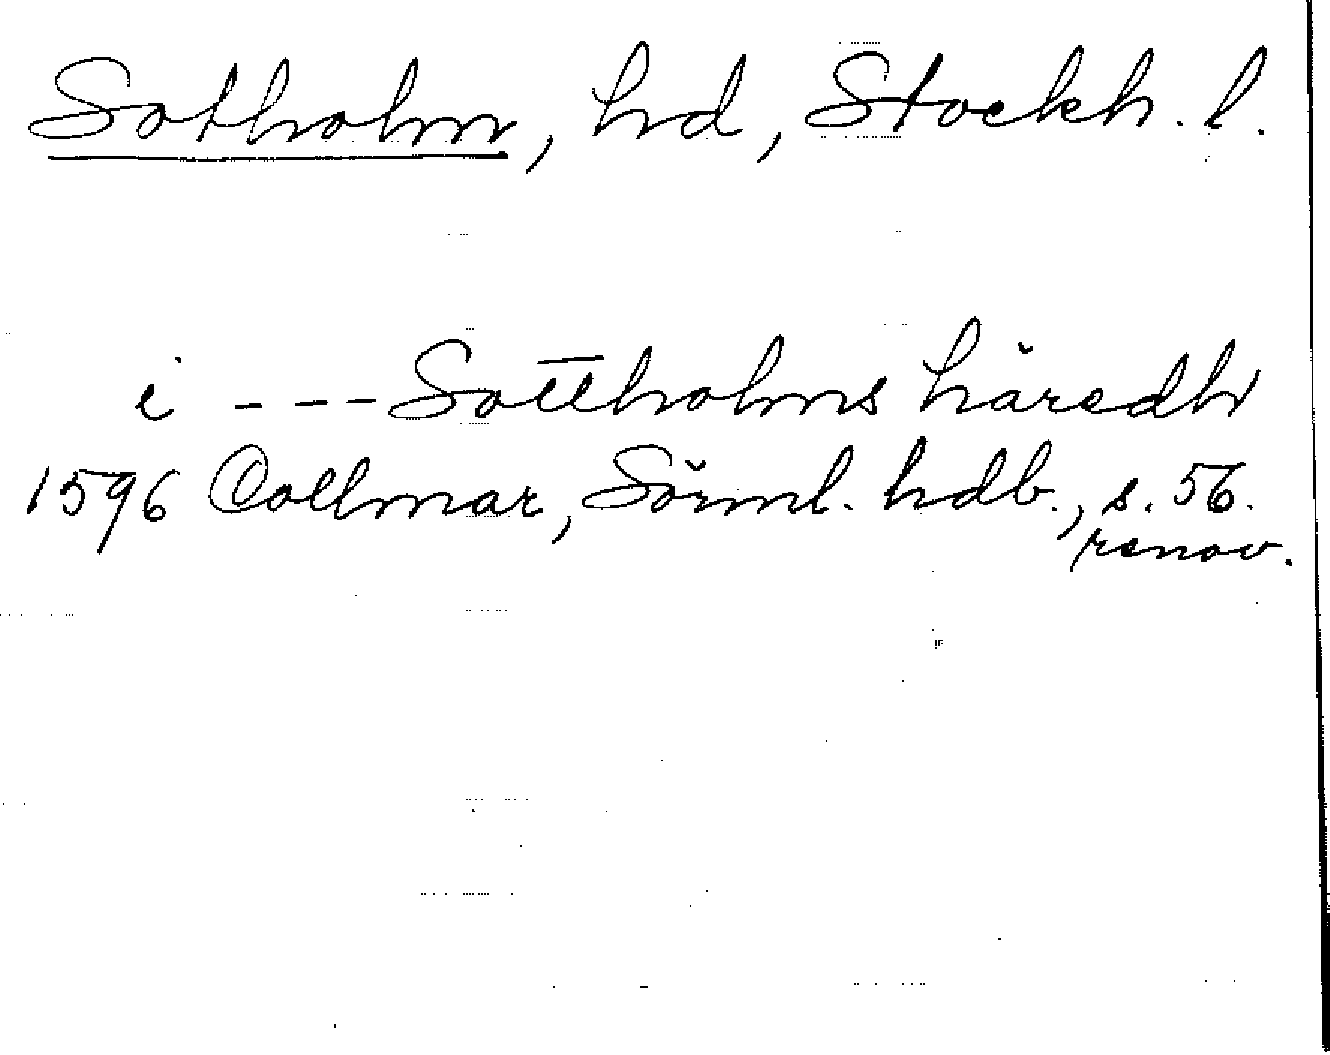 Sotholm, hd, Stockh. l.
i --- Sottholms häredh
1596 Collmar, Sörml. hdb., s. 56.
renov.